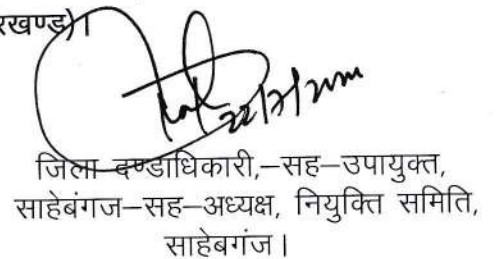 रखण्ड)।
जिला दण्डाधिकारी,–सह–उपायुक्त,
साहेबंगज–सह–अध्यक्ष, नियुक्ति समिति,
साहेबगंज।